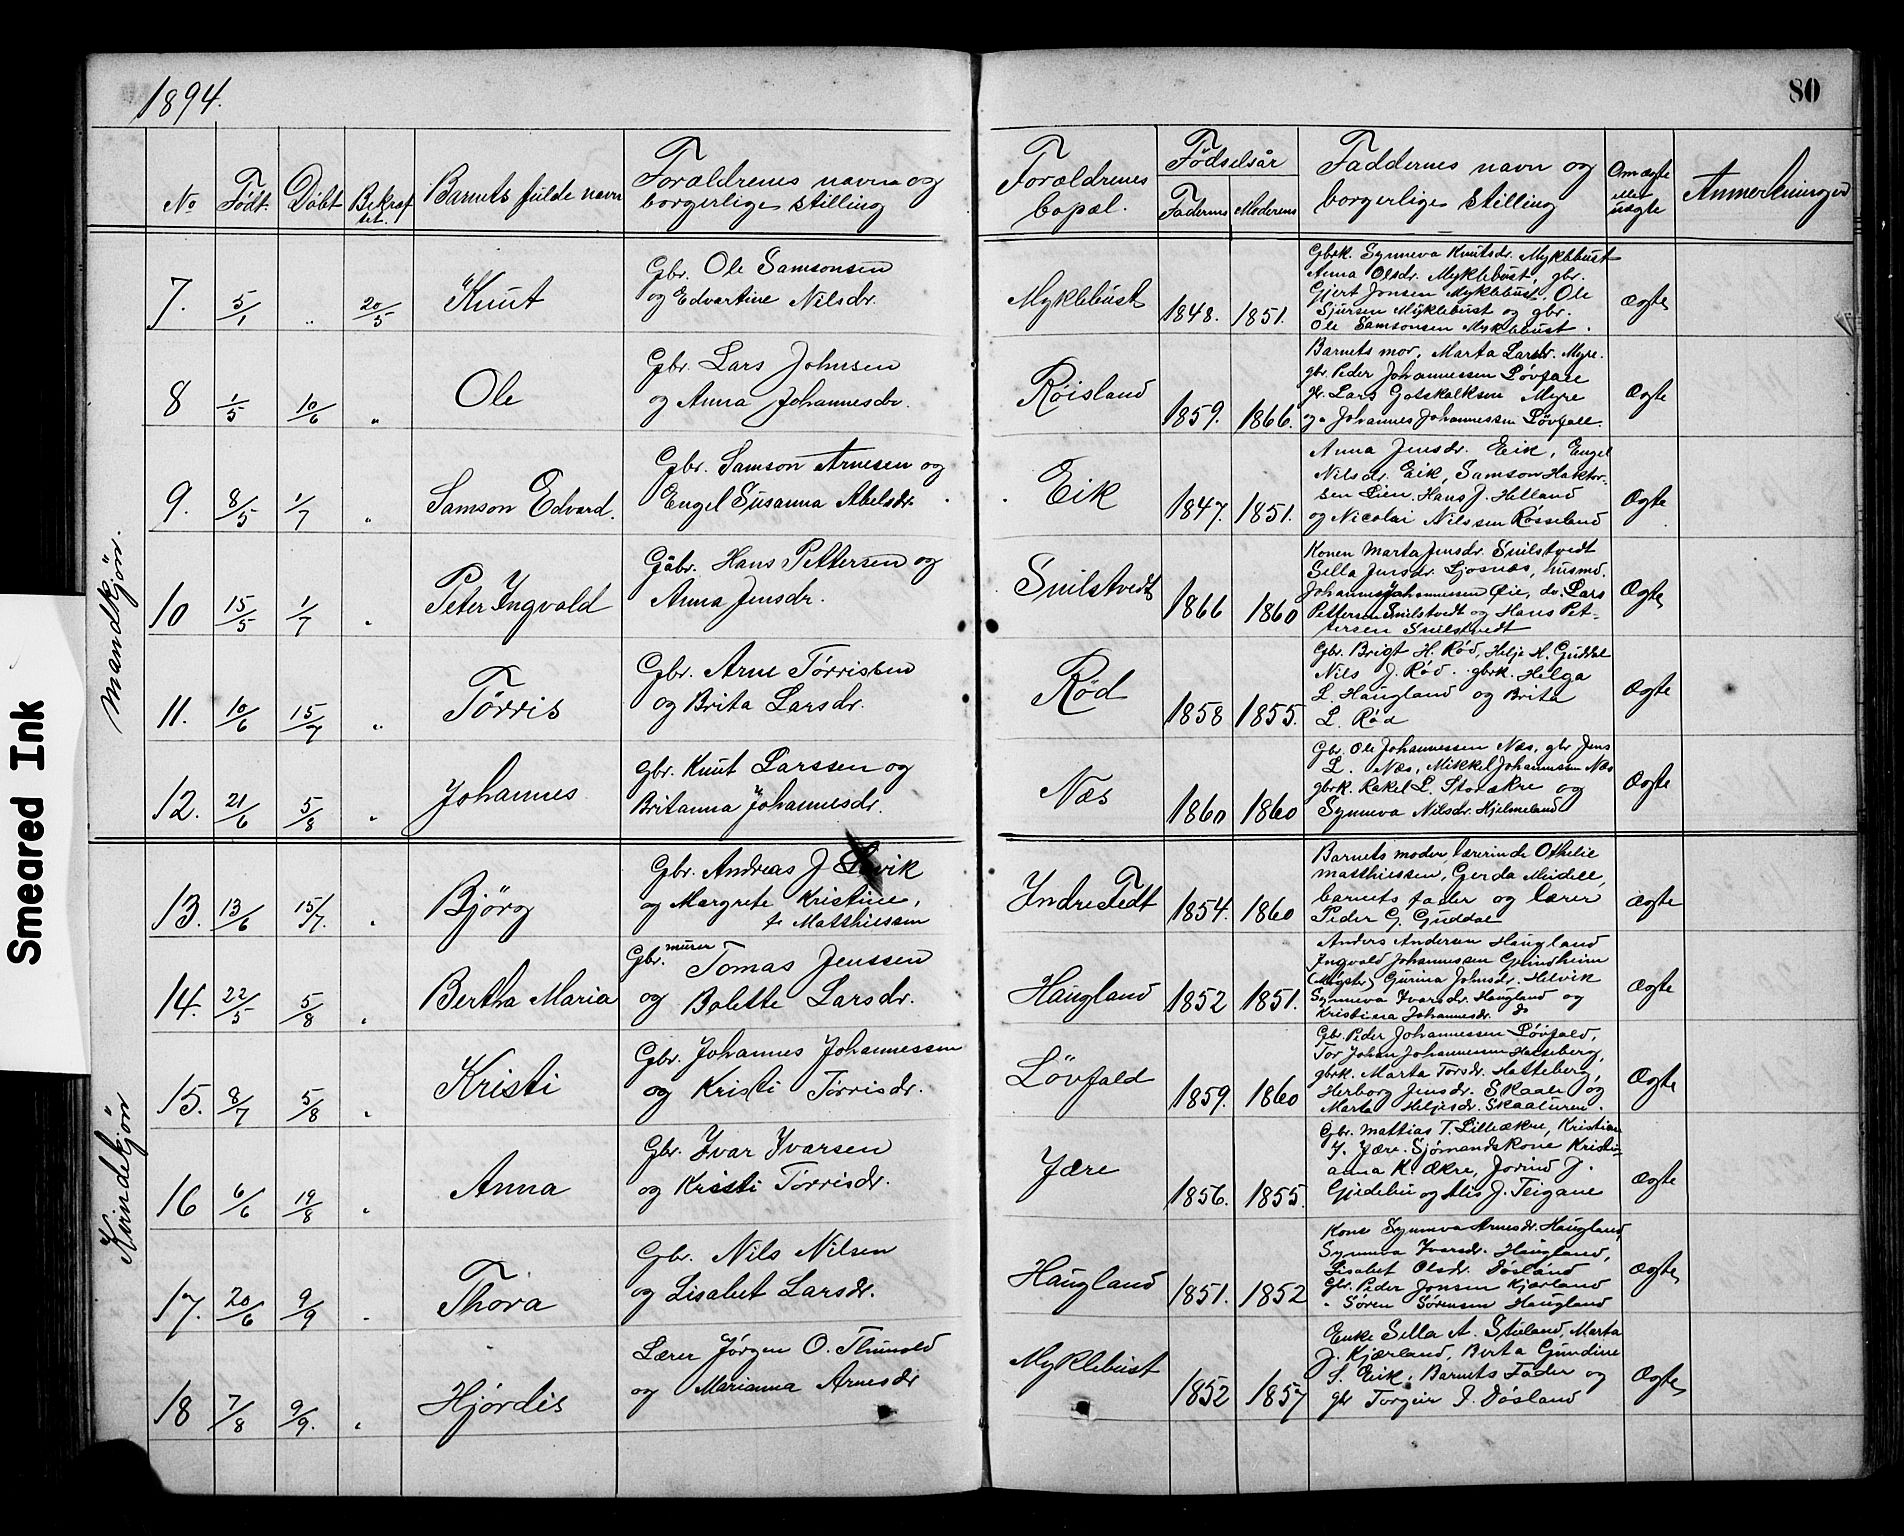 1894.
80
No
Født.
Døbt
Bekræf
tet.
Barnets fulde navn
Forældrenes navn og
borgerlige stilling
Forældrenes
bopæl.
Fødselsår
Faderens
Moderens
Faddernes navn og
borgerlige stilling
Om ægte
eller
uægte
Anmerkninger
Mandkjøn.
7. 5/1 " 20/5 Knut
Gbr. Ole Samsonsen
og Edvartine Nilsdr.
Myklebust 1848. 1851.
Gbrk. Synneva Knutsdr. Myklebust
Anna Olsdr. Myklebust, gbr.
Gjert Jonsen Myklebust, Ole
Sjursen Myklebust og gbr.
Ole Samsonsen Myklebust.
Ægte
8 1/5 10/6 " Ole
Gbr. Lars Johnsen
og Anna Johannesdr.
Røisland 1859. 1866.
Barnets mor, Marta Larsdr. Myre.
gbr. Peder Johannessen Løvfale
Lars Gotskalksen Myre
og Johannes Johannessen Løvfall.
Ægte
9. 8/5 1/7 " Samson Edvard.
Gbr. Samson Arnesen og
Engel Susanna Abelsdr.
Eik 1847. 1851.
Anna Jensdr. Eik, Engel
Nilsdr. Eik, Samson Haktor-
sen Lien, Hans J. Helland
og Nicolai Nilssen Røsseland
Ægte
10 15/5 1/7 " Peter Ingvald
Gåbr. Hans Pettersen og
Anna Jensdr.
Snilstvedt 1866 1860
Konen Marta Jensdr. Snilstvedt
Sella Jensdr. Ljosnæs, husmd.
Johannes Johannessen Øie, do. Lars
Pettersen Snilstvedt og Hans Pet-
tersen Snilstvedt
Ægte
11. 10/6 15/7 " Tørris
Gbr. Arne Tørrissen
og Brita Larsdr.
Rød 1858 1855.
Gbr. Brigt H. Rød, Helje H. Guddal
Nils J. Rød. gbrk. Helga
L. Haugland og Brita
L. Rød
Ægte
12. 21/6 5/8 " Johannes
Gbr. Knut Larssen og
Britanna Johannesdr.
Næs 1860 1860
Gbr. Ole Johannessen Næs, gbr. Jens
L. Næs, Mikkel Johannessen Næs
gbrk. Rakel L. Storækre og
Synneva Nilsdr. Hjelmeland
Ægte
Kvindekjøn
13. 13/6 15/7. " Bjørg
Gbr. Andreas J
og Margrete Kristine,
f. Matthiessen
Yndre Tedt 1854. 1860
Barnets moder, lærerinde Othelie
Matthiessen, Gerda Meidell,
barnets fader og lærer
Peder G. Guddal
Ægte
14. 22/5 5/8 " Bertha Maria
Gbr. murer Tomas Jenssen
og Bolette Larsdr.
Haugland 1852 1851.
Anders Andersen Haugland
Ingvald Johannessen Grindheim
Gurina Johnsdr. Helvik
Synneva Ivarsdr. Haugland og
Kristina Johannesdr. do
Ægte
15. 8/7 5/8 " Kristi
Gbr. Johannes Johannessen
og Kristi Tørrisdr.
Løvfald 1859. 1860
Gbr. Peder Johannessen Løvfald,
Tor Johan Johannessen Hatteberg,
gbrk. Marta Torsdr. Hatteberg,
Herborg Jensdr. Skaale og
Marta Heljesdr. Skaaluren.
Ægte
16 6/6 19/8 " Anna
Gbr. Ivar Ivarsen
og Kristi Tørrisdr.
Jære 1856. 1855.
Gbr. Mattias T. Lilleækre, Kristian
Y. Jære. Sjømandskone Kristi-
anna K. Ækre, Jorind J.
Gjedebu og Alis J. Teigane
Ægte
17. 20/6 9/9 " Thora
Gbr. Nils Nilsen
og Lisabet Larsdr.
Haugland 1851. 1852
Kone Synneva Arnesdr. Haugland,
Synneva Ivarsdr. Haugland,
Lisabet Olsdr. Døsland
Gbr. Peder Jonsen Kjærland
" Søren Sørensen Haugland
Ægte
18 7/8 9/9. " Hjørdis
Lærer Jørgen O. Thunold
og Marianna Arnesdr
Myklebust 1852 1857
Enke Sella A. Støland, Marta
J. Kjærland, Berta Gundine
S. Eik, Barnets Fader og
gbr Torgeir P. Døsland
Ægte
Smeared Ink